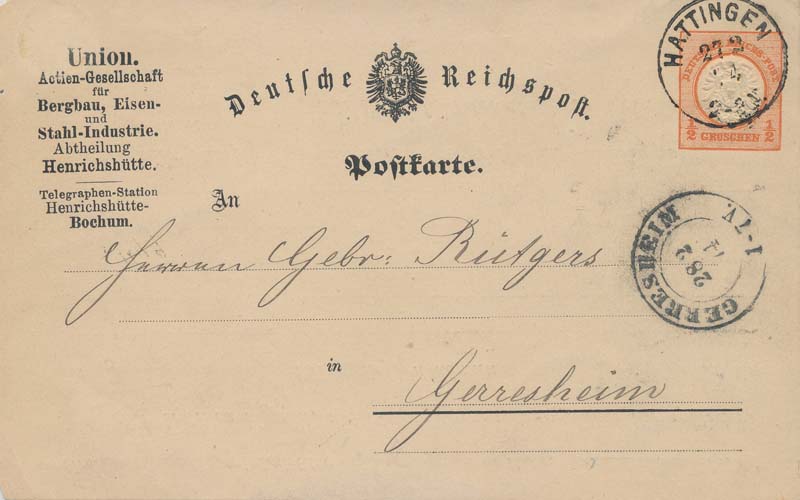 Union.
Actien-Gesellschaft
für
Bergbau, Eisen-
und
Stahl-Industrie.
Abtheilung
Henrichshütte.
Telegraphen-Station
Henrichshütte-
Bochum.
Deutsche Reichspost.
Postkarte.
HATTINGEN
27 2
1/2 GROSCHEN 1/2
An
Herren Gebr: Rütgers
GERRESHEIM
28 2
74
1-7V.
in
Gerresheim